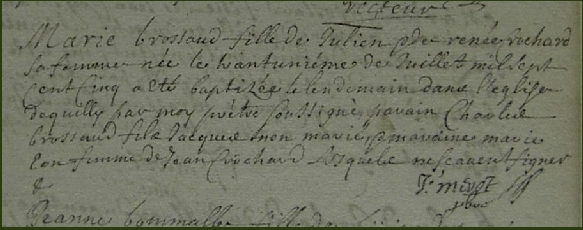 recteur
Marie brossaud fille de Julien & de renée rochard
sa femme née le vantunième de Juillet mil sept
cent cinq a été baptizée le lendemain dans l'eglise
de quilly par moy prêtre soussigné parain Charles
brossaud fils Jacques non marié & maraine marie
femme de Jean Crochard lesquels ne scavent signer
&
Jeanne fille de